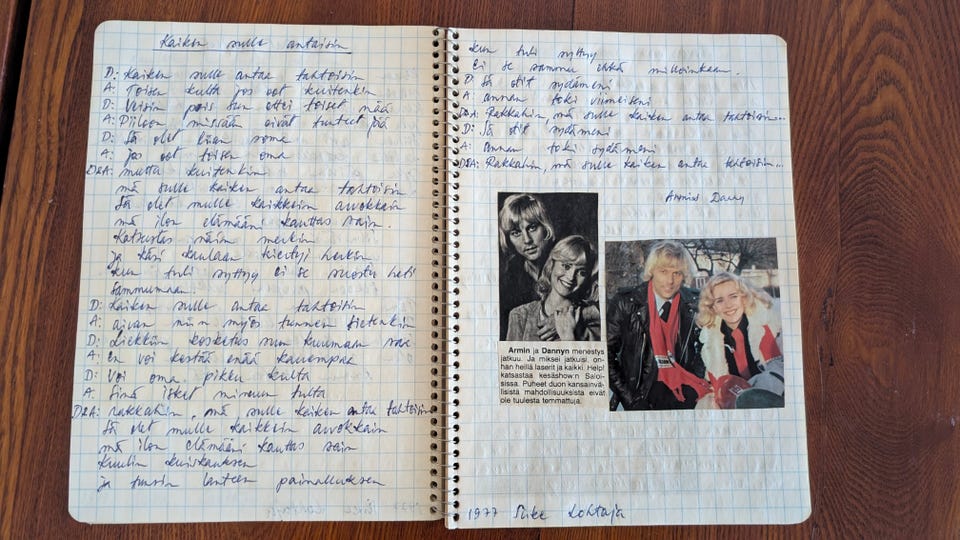 Kaiken sulle antaisin
D: Kaiken sulle antaa tahtoisin
A: Toisen kulta jos oot kuitenkin
D: Veisin pois sun ettei toiset nää
A: Piiloon missään eivät tunteet jää
D: Sä olet liian some
A: jos oot toisen oma
D&A: mutta kuitenkin
mä sulle kaiken antaa tahtoisin
Sä olet mulle kaikkein arvokkain
mä ilon elämääni kauttas sain.
Katsustas näin merkin
ja käsi kaulaan kiertyi herkin
kun tuli syttyy ei se suostu heti
sammumaan.
D: Kaiken sulle antaa tahtoisin
A: aivan niin myös tunnen tietenkin
D: Liekkiin kosketus sun kuumaan saa
A: En voi kestää enää kauempaa
D: Voi oma pikku kulta
A: Sinä isket minuun tulta
D&A: rakkahin, mä sulle kaiken antaa tahtoisin
Sä olet mulle kaikkein arvokkain
mä ilon elämääni kauttas sain
Kuulin kuiskauksen
ja tunsin lanteen painalluksen
kun tuli syttyy
Ei se sammu ehkä milloinkaan.
D Sä otit sydämeni
A annan toki viimeiseni
D&A: Rakkahin, mä sulle kaiken antaa tahtoisin...
D: Sä otit sydämeni
A: annan toki sydämeni
D&A: Rakkahin, mä sulle kaiken antaa tahtoisin...
Armin Danny
Armin ja Dannyn menestys
jatkuu. Ja miksei jatkuisi, on-
han heillä laserit ja kaikki. Help!
katsastaa kesäshow:n Saloi-
sissa. Puheet duon kansainvä-
lisistä mahdollisuuksista eivät
ole tuulesta temmattuja.
1977